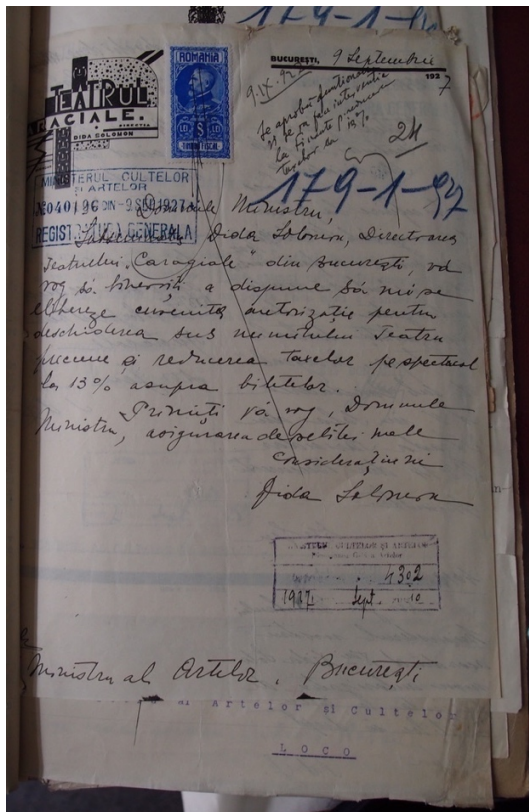 179-1-927
TEATRUL
CARAGIALE.
DIRECȚIA
DIDA SOLOMON
ROMANIA
LEI 8 LEI
TIMBRU FISCAL
BUCUREȘTI, 9 Septembrie
1927
9.IX.927
Se aprobă funcționarea
și se va face intervenție
la Finanțe pt reducerea
taxelor la 13%
24
179-1-927
MINISTERUL CULTELOR
ȘI ARTELOR
No 040196 DIN - 9 SEP. 1927
REGISTRATURA GENERALA
Domnule Ministru,
Subsemnata Dida Solomon, Directoarea
Teatrului "Caragiale" din București, vă
rog să binevoiți a dispune să mi se
elibereze cuvenita autorizație pentru
deschiderea sus numitului Teatru
precum și reducerea taxelor pe spectacol
la 13% asupra biletelor.
Primiți vă rog, Domnule
Ministru, asigurarea deosebitei mele
considerațiuni
Dida Solomon
MINISTERUL CULTELOR ȘI ARTELOR
4302
1927 Sept. 10
Ministru al Artelor, București
al Artelor si Cultelor
LOCO